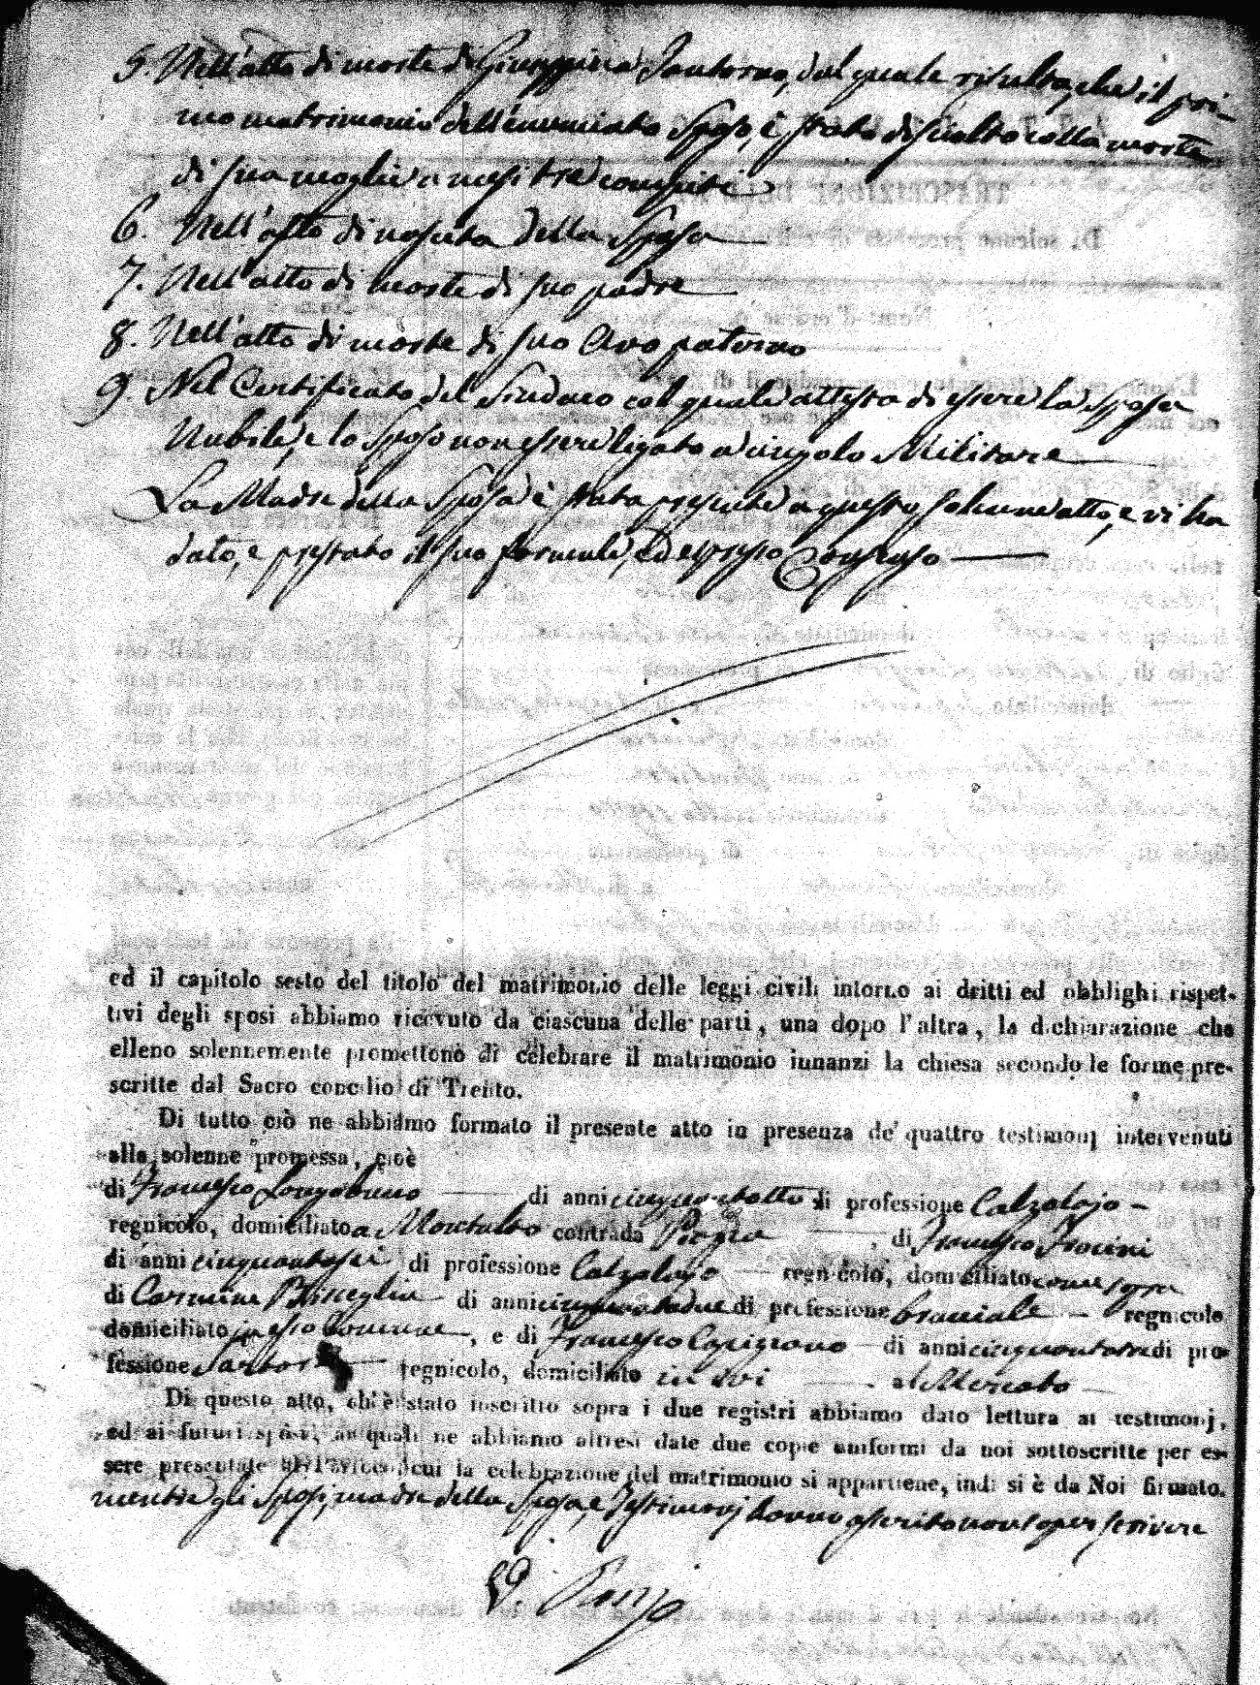 5. Nell'atto di morte di Giuseppina Santoro, dal quale risulta, che il pri-
mo matrimonio dell'enunciato Sposo, è stato disciolto colla morte
di sua moglie a mesi tre compiti
6. Nell'atto di nascita della Sposa
7. Nell'atto di morte di suo padre
8. Nell'atto di morte di suo Avo paterno
9. Nel Certificato del Sindaco col quale attesta di essere la Sposa
Nubile, e lo Sposo non essere legato a vincolo Militare
La Madre della Sposa è stata presente a questo solenne atto, e vi ha
dato, e prestato il suo formale, ed espresso Consenso
ed il capitolo sesto del titolo del matrimonio delle leggi civili intorno ai dritti ed obblighi rispet-
tivi degli sposi abbiamo ricevuto da ciascuna delle parti, una dopo l'altra, la dichiarazione che
elleno solennemente promettono di celebrare il matrimonio innanzi la chiesa secondo le forme pre-
scritte dal Sacro concilio di Trento.
Di tutto ciò ne abbiamo formato il presente atto in presenza de' quattro testimonj intervenuti
alla solenne promessa, cioè
di Francesco Longobucco di anni cinquantotto di professione Calzolajo
regnicolo, domiciliato a Montalto contrada Poggio, di Francesco
di anni cinquantasei di professione Calzolajo regnicolo, domiciliato come sopra
di Carmine Bisceglia di anni cinquantadue di professione bracciale regnicolo
domiciliato in esso Comune, e di Francesco Capizzano di anni cinquantatre di pro-
fessione Sartore regnicolo, domiciliato in ivi al Mercato
Di questo atto, ch'è stato inscritto sopra i due registri abbiamo dato lettura ai testimonj,
ed ai futuri sposi, ai quali ne abbiamo altresì date due copie uniformi da noi sottoscritte per es-
sere presentate al Parroco cui la celebrazione del matrimonio si appartiene, indi si è da Noi firmato,
mentre gli Sposi, madre della Sposa, e Testimonj hanno asserito non saper scrivere